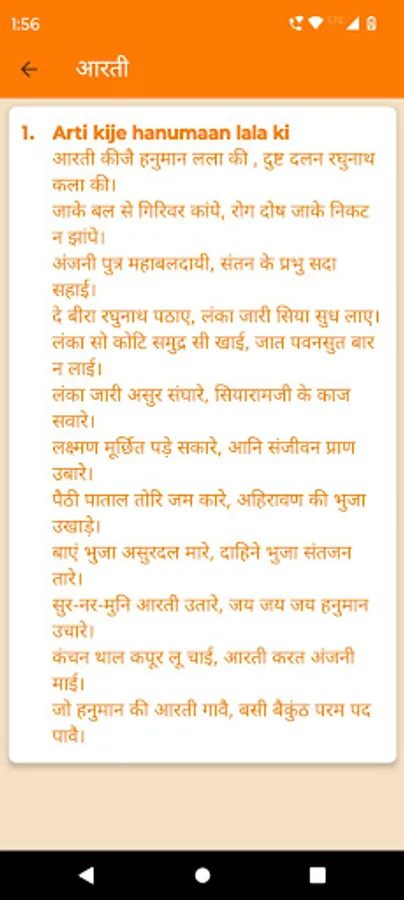 1:56
LTE
आरती
1. Arti kije hanumaan lala ki
आरती कीजै हनुमान लला की , दुष्ट दलन रघुनाथ
कला की।
जाके बल से गिरिवर कांपे, रोग दोष जाके निकट
न झांपे।
अंजनी पुत्र महाबलदायी, संतन के प्रभु सदा
सहाई।
दे बीरा रघुनाथ पठाए, लंका जारी सिया सुध लाए।
लंका सो कोटि समुद्र सी खाई, जात पवनसुत बार
न लाई।
लंका जारी असुर संघारे, सियारामजी के काज
सवारे।
लक्ष्मण मूर्छित पड़े सकारे, आनि संजीवन प्राण
उबारे।
पैठी पाताल तोरि जम कारे, अहिरावण की भुजा
उखाड़े।
बाएं भुजा असुरदल मारे, दाहिने भुजा संतजन
तारे।
सुर-नर-मुनि आरती उतारे, जय जय जय हनुमान
उचारे।
कंचन थाल कपूर लू चाई, आरती करत अंजनी
माई।
जो हनुमान की आरती गावै, बसी बैकुंठ परम पद
पावै।